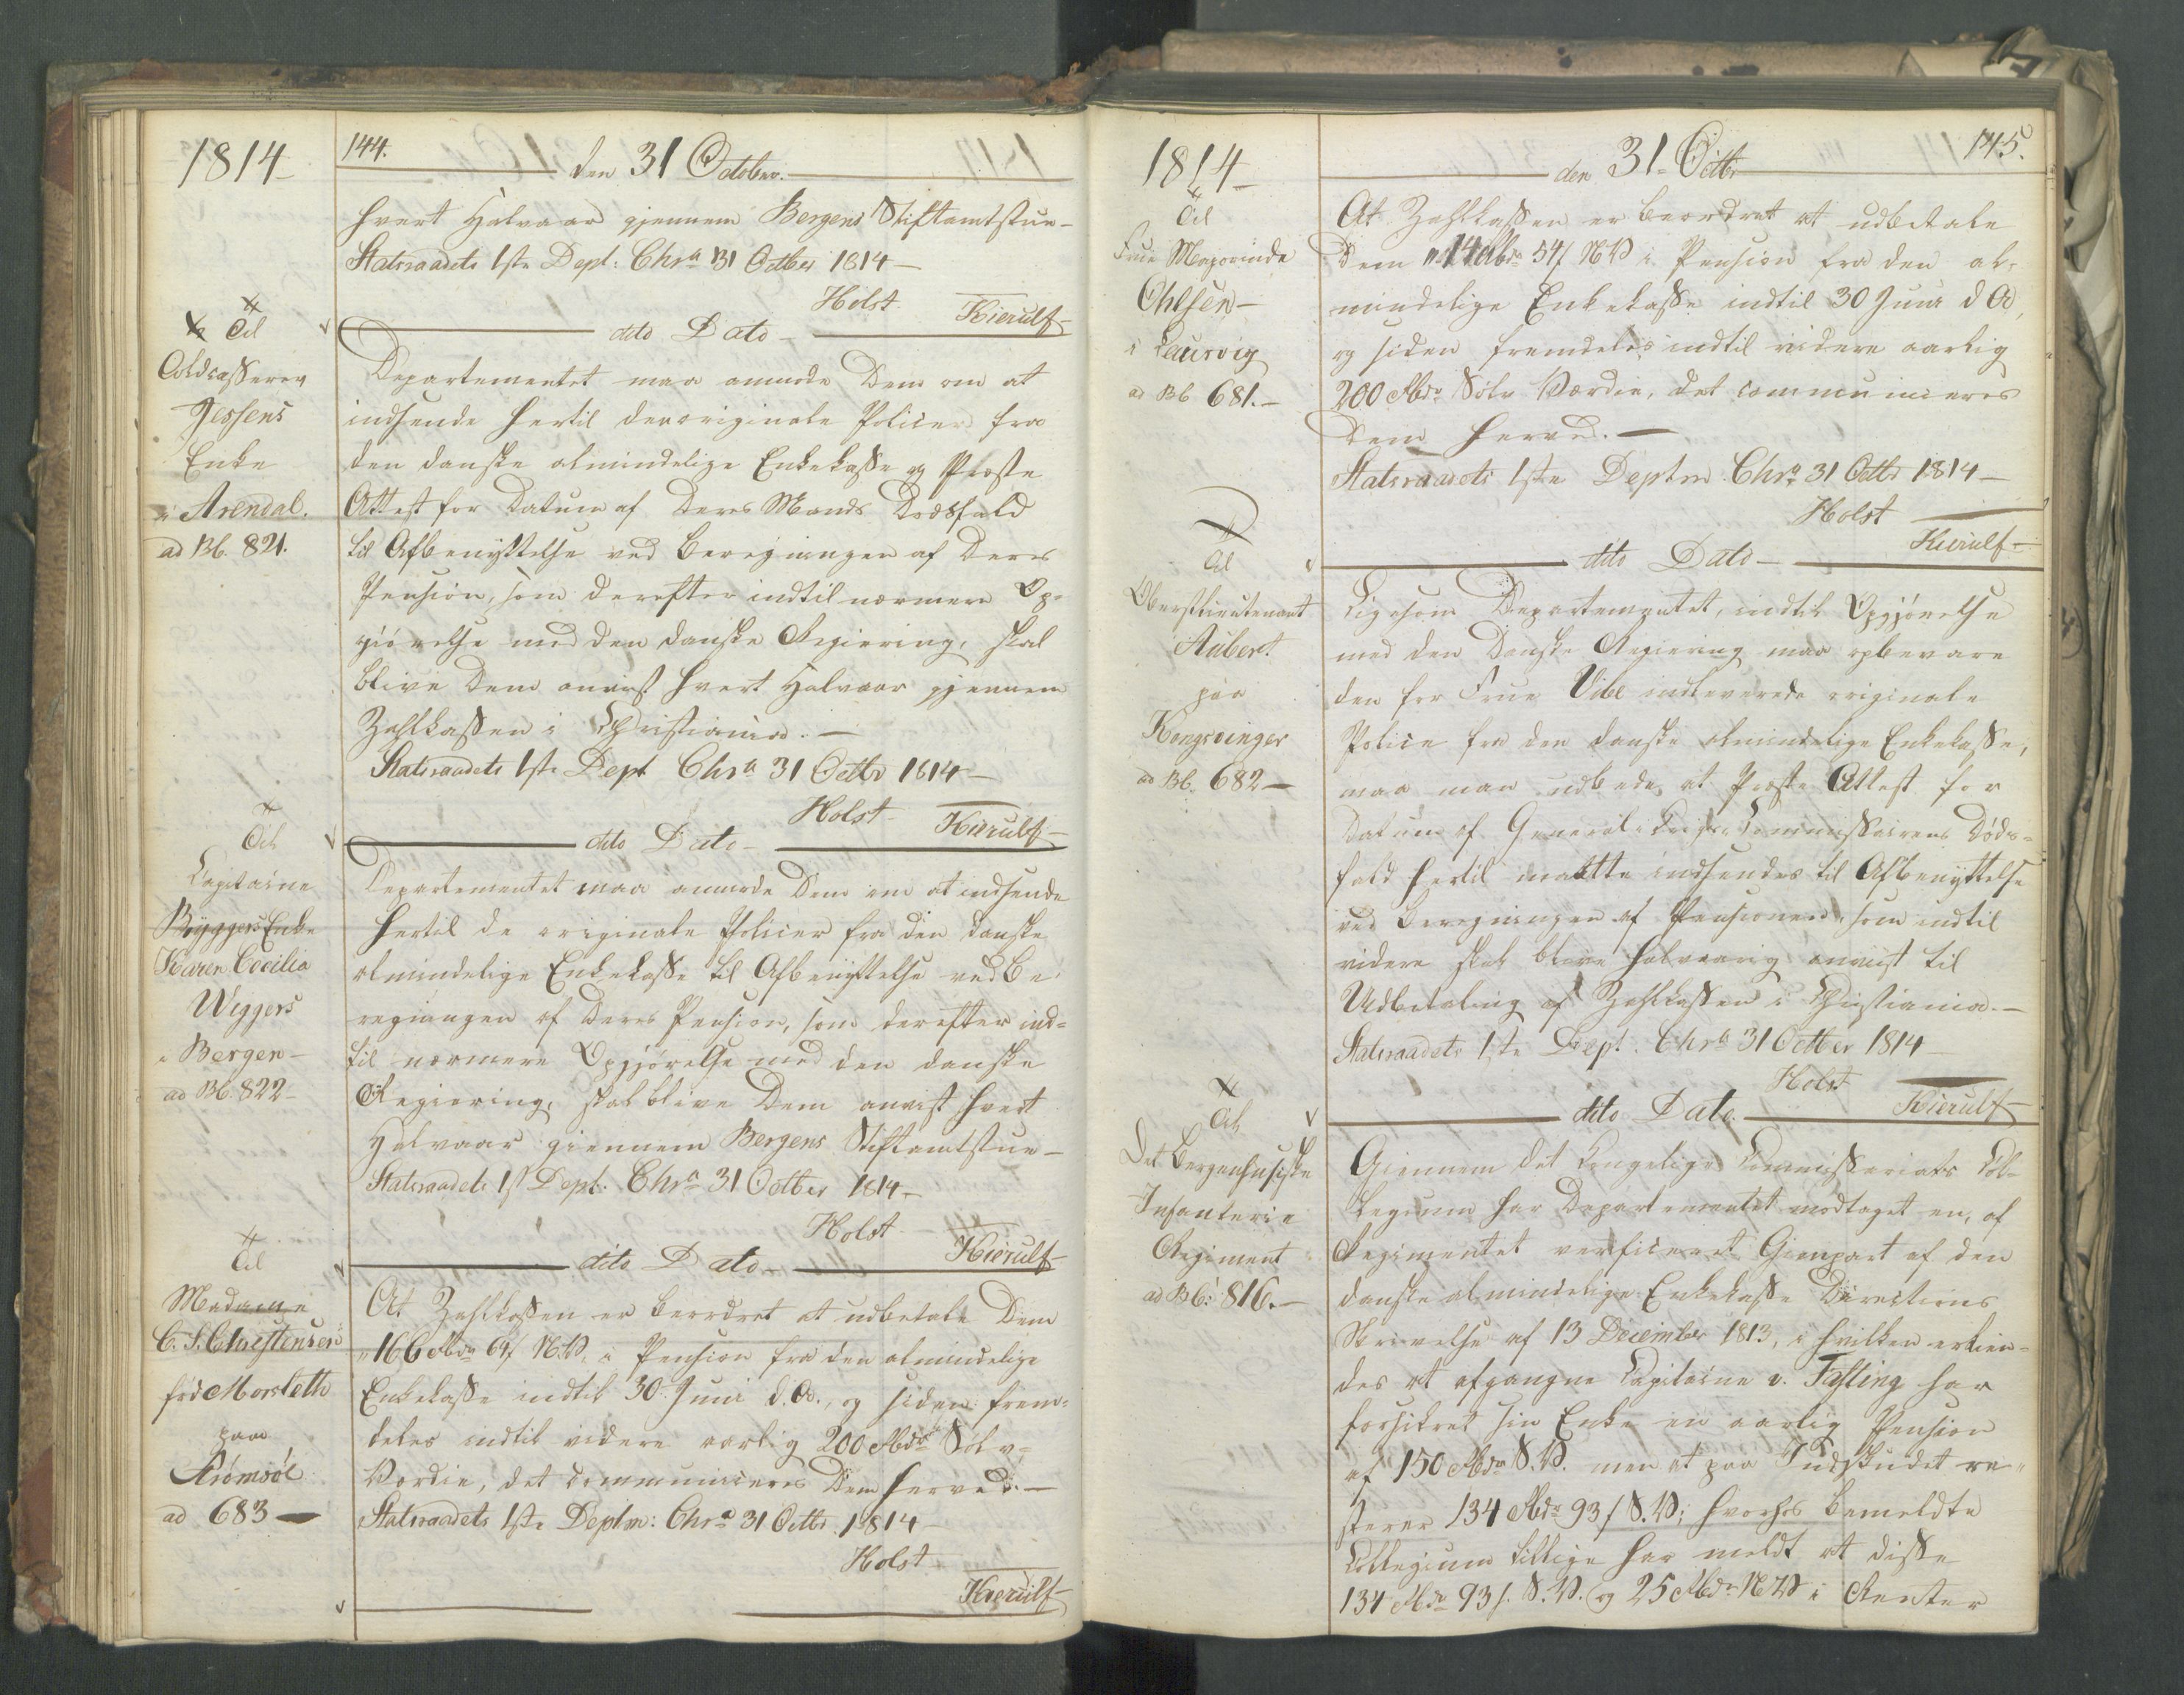 1814
144.
den 31 October.
hvert Halvaar gjennem Bergens Stiftamtstue.
Statsraadets 1ste Dept: Chra 31 Octber 1814
Holst
Kierulf
Til
Toldcasserer
Jessens
Enke
i Arendal.
ad Bb. 821.
dito Dato
Departementet maa anmode Dem om at
indsende hertil den originale Policer fra
den danske almindelige Enkekasse og Præste
Attest for Datum af Deres Mands Dødsfald
til Afbenyttelse ved Beregningen af Deres
Pension, som derefter indtil nærmere Op-
giørelse med den danske Regiering, skal
blive Dem anvist hvert Halvaar gjennem
Zahlkassen i Christiania.
Statsraadets 1ste Dept Chra 31 Octbr 1814
Holst
Kierulf
Til
Capitaine
Byggers Enke
Karen Cecilia
Wiggers
i Bergen
ad Bb. 822
dito Dato
Departementet maa anmode Dem om at indsende
hertil de originale Policer fra den danske
almindelige Enkekasse til Afbenyttelse ved Be-
regningen af Deres Pension, som derefter ind-
til nærmere Opgjørelse med den danske
Regiering, skal blive Dem anvist hvert
Halvaar giennem Bergens Stiftamtstue
Statsraadets 1st Dept: Chra 31 Octber 1814
Holst
Kierulf
Til
Madame
C. S. Christensen
fød Morsleth
paa
ad 683
dito Dato
At Zahlkassen er beordret at udbetale Dem
"166 Rbdr 64s N.V. i Pension fra den almindelige
Enkekasse indtil 30 Juni d.A., og siden frem-
deles indtil videre aarlig 200 Rbdr Sølv-
Værdie, det communiceres Dem herved.
Statsraadets 1ste Deptm: Chra 31 Octbr 1814
Holst
Kierulf
1814
145.
den 31 Octbr
Til
Frue Majorinde
Ohlsen
i Laurvig
ad Bb 681.
At Zahlkassen er beordret at udbetale
Dem "14 Rbdr 54s N.V i Pension fra den al-
mindelige Enkekasse indtil 30 Juni d A,
og siden fremdeles indtil videre aarlig
200 Rbdr Sølv Værdie, det communiceres
Dem herved.
Statsraadets 1ste Deptm Chra 31 Octbr 1814
Holst
Kierulf
Til
Oberstlieutenant
Aubert
paa
Kongsvinger
ad Bb. 682
dito Dato
Ligesom Departementet, indtil Opgjørelse
med den Danske Regiering maa opbevare
den for Frue Vibe indleverede originale
Police fra den danske almindelige Enkekasse,
maa man udbede, at Præste Attest for
Datum af General Krigs Commissairens Døds-
fald hertil maatte indsendes til Afbenyttelse
ved Beregningen af Pensionen, som indtil
videre skal blive halvaarig anviist til
Udbetaling af Zahlkassen i Christiania.
Statsraadets 1ste Dept. Chra 31 Octber 1814
Holst
Kierulf
Til
Det Bergenhusiske
Infanterie
Regiment
ad Bb: 816.
dito Dato
Giennem det Kongelige Commissariats Col-
legium har Departementet modtaget en, af
Regimentet verficeret Gienpart af den
danske almindelige Enkekasse Directions
Skrivelse af 13 December 1813, i hvilken erkien-
des at afgangne Capitaine v. Tasling har
forsikret sin Enke en aarlig Pension
af 150 Rbdr S.V. men at paa Indskudet re-
sterer 134 Rbdr 93s S.V; hvorhos bemeldte
Collegium tillige har meldt at disse
134 Rbdr 93s. S.V. og 25 Rbdr N.V i Renter